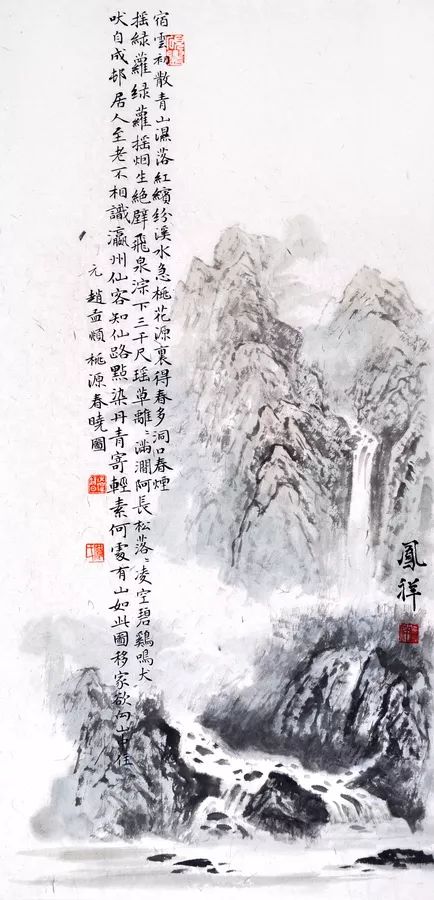 宿雲初散青山濕落紅繽紛溪水急桃花源裏得春多洞口春煙
摇緑蘿绿蘿摇烟生絶壁飛泉淙下三千尺瑶草離〻滿澗阿長松落〻凌空碧鷄鳴犬
吠自成邨居人至老不相識瀛州仙客知仙路點染丹青寄輕素何處有山如此圖移家欲向山下住
元趙孟頫桃源春曉圖
鳳祥